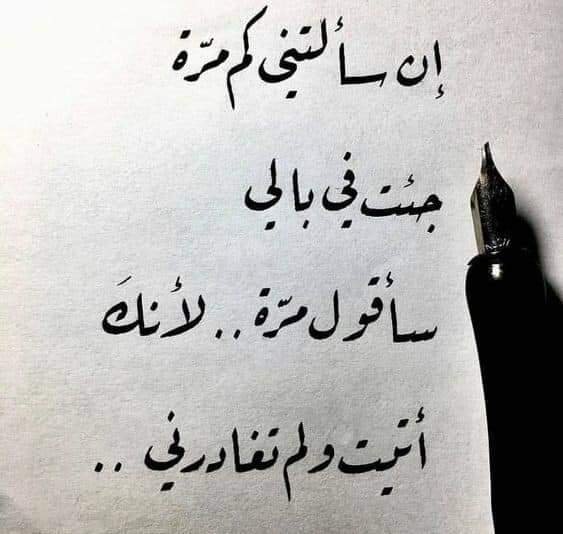 إن سألتني كم مرّة
جئت في بالي
سأقول مرّة .. لأنكَ
أتيت ولم تغادرني ..